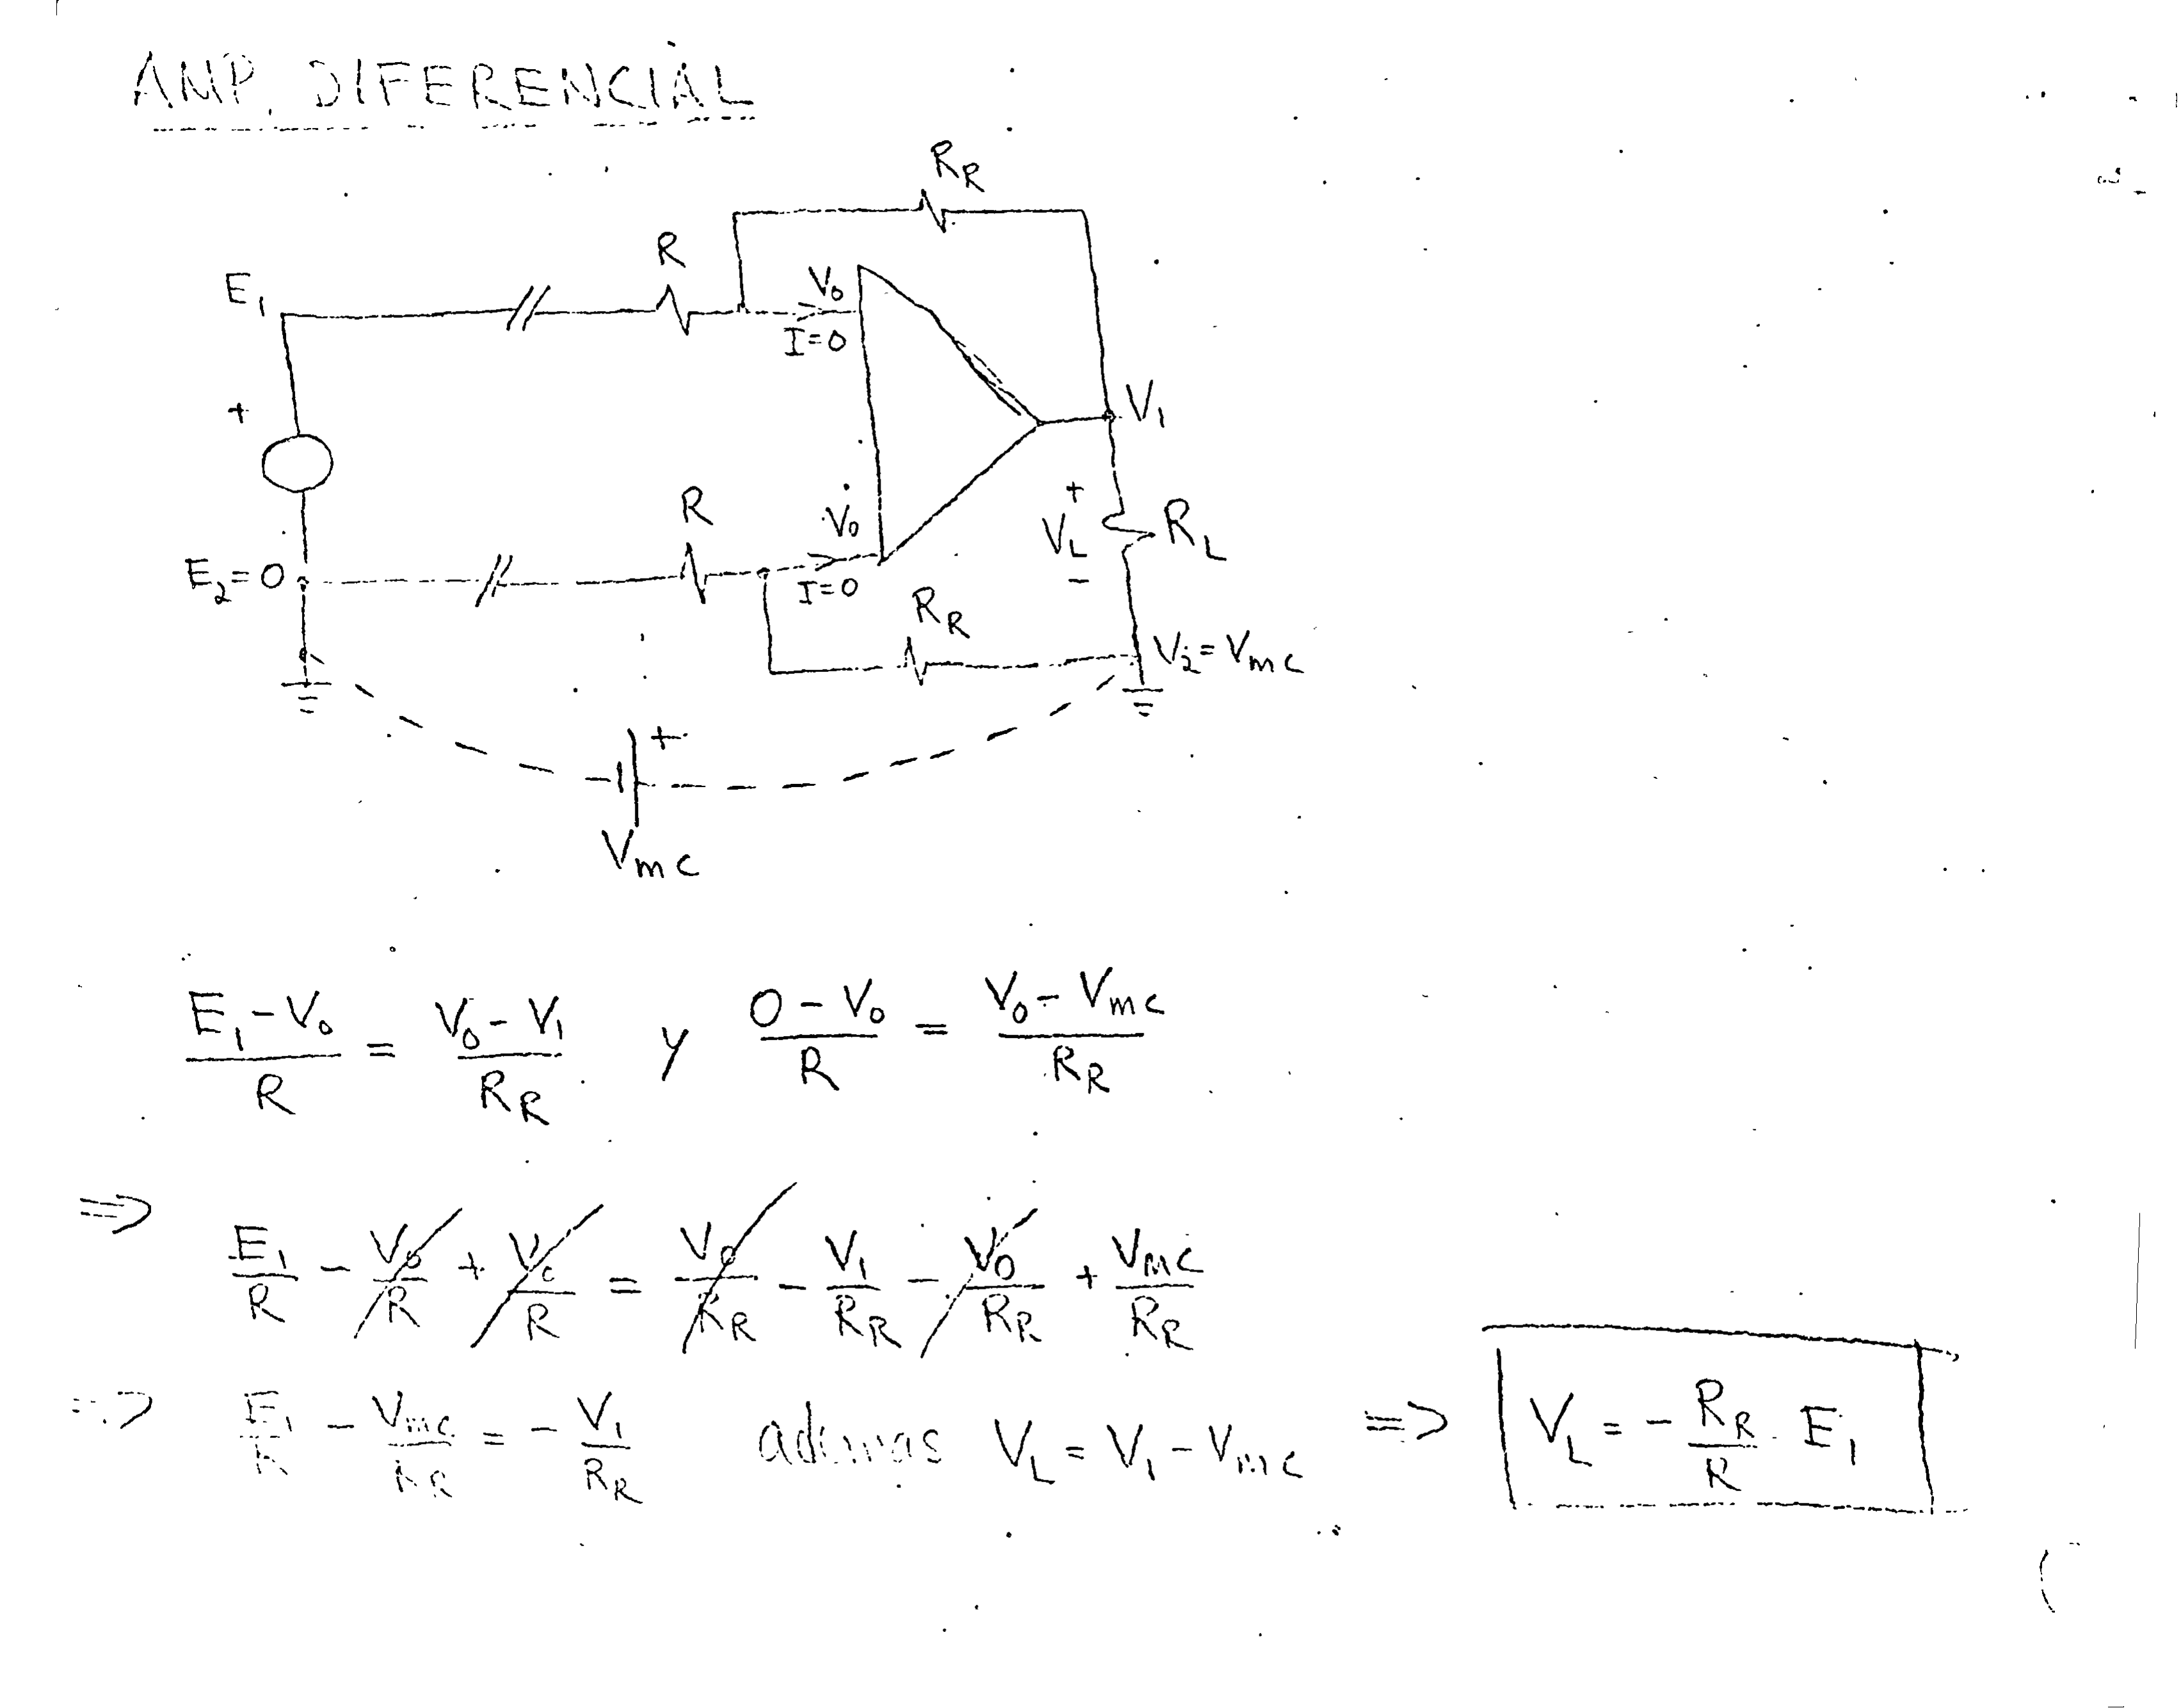 AMP. DIFERENCIAL
R_R
R
E_1
V_0
I=0
+
V_1
R
V_0
+
V_L
-
R_L
E_2=0
I=0
R_R
V_2=V_mc
+
V_mc
(E_1-V_0)/R = (V_0-V_1)/R_R y (0-V_0)/R = (V_0-V_mc)/R_R
⇒
E_1/R - V_0/R + V_0/R = V_0/R_R - V_1/R_R - V_0/R_R + V_mc/R_R
⇒ E_1/R - V_mc/R_R = - V_1/R_R ademas V_L = V_1 - V_mc ⇒ V_L = - R_R/R . E_1